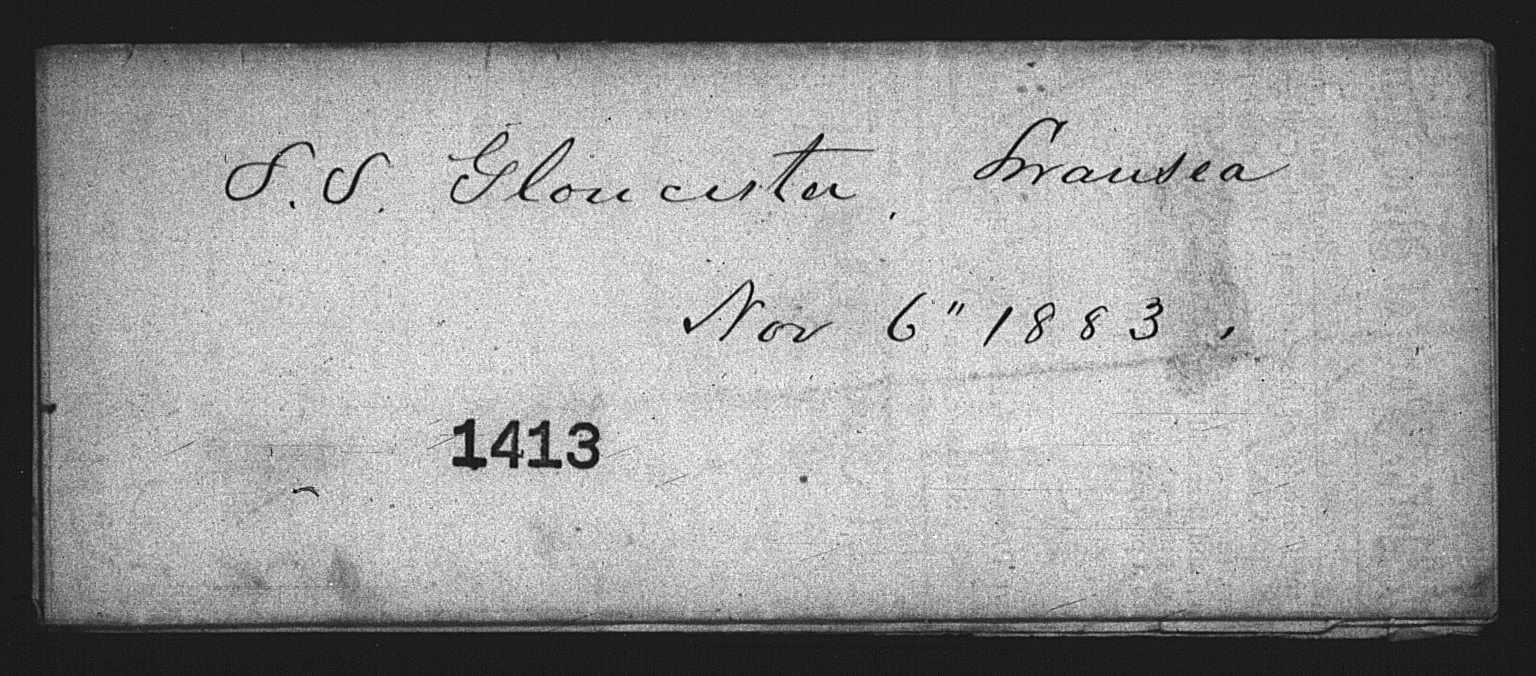 S.S. Gloucester, Swansea
Nov 6" 1883.
1413